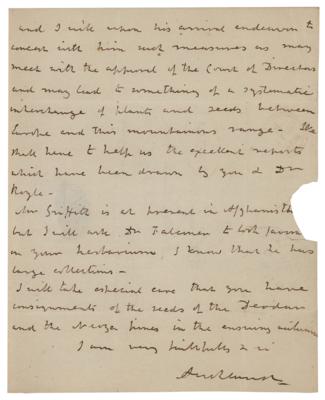 and I will upon his arrival endeavour to
concert with him such measures as may
meet with the approval of the Court of Directors
and may lead to something of a systematic
interchange of plants and seeds between
Europe and this mountainous range - We
shall have to help us the excellent reports
which have been drawn by you & Dr
Royle -
Mr Griffith is at present in Afghanist
but I will ask Dr Falconer to look favour
on your herbarium, I know that he has
large collections -
I will take especial care that you have
consignments of the seeds of the Deodar
and the Neoza pines in the ensuing autumn
I am very faithfully
Auckland